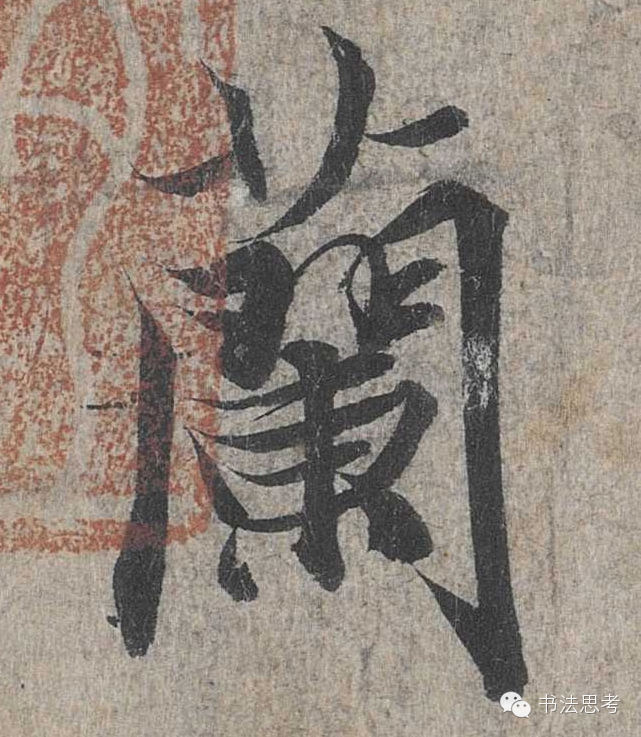 蘭
书法思考